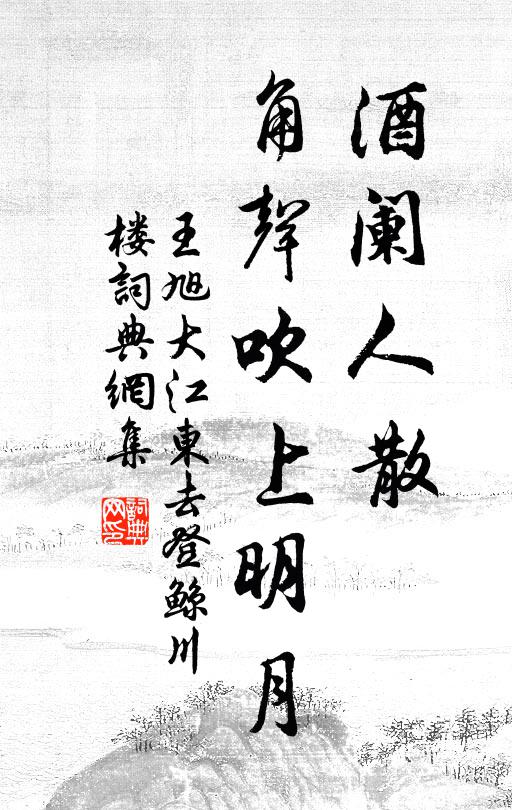 酒阑人散
角聲吹上明月
王旭大江東去登鲸川
楼詞典網集
詞典
网